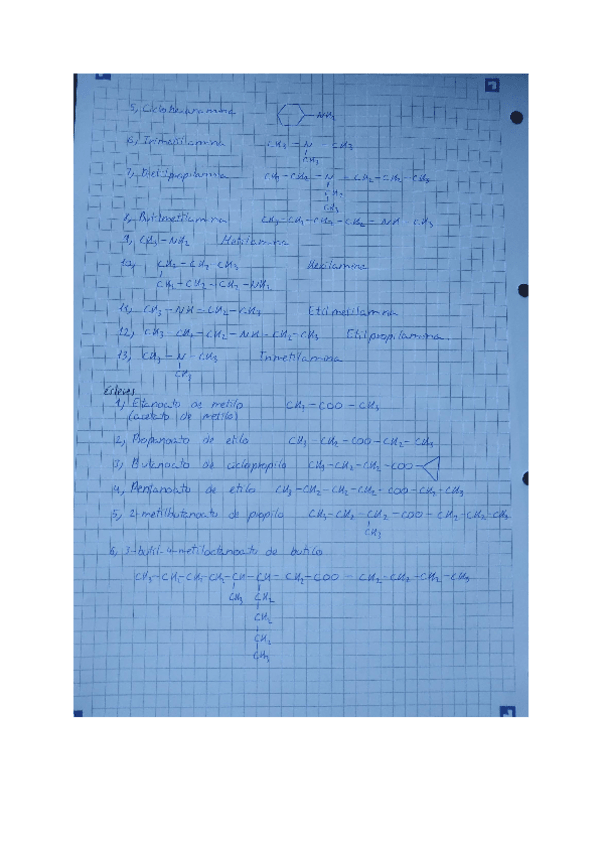 5, Ciclohexanamina -NH2
6, Trimetilamina CH3 - N - CH3
CH3
7, Dietilpropilamina CH3-CH2 - N - CH2-CH2-CH3
CH2
CH3
8, Butilmetilamina CH3-CH2-CH2-CH2-NH-CH3
9, CH3-NH2 Metilamina
10, CH2-CH2-CH3 Hexilamina
CH2-CH2-CH2-NH2
11, CH3-NH-CH2-CH3 Etilmetilamina
12) CH3 CH2-CH2-NH-CH2-CH3 Etilpropilamina.
13) CH3-N-CH3 Trimetilamina
CH3
Ésteres
1) Etanoato de metilo CH3-COO-CH3
(acetato de metilo)
2, Propanoato de etilo CH3-CH2-COO-CH2-CH3
3) Butanoato de ciclopropilo CH3-CH2-CH2-COO-
4, Pentanoato de etilo CH3-CH2-CH2-CH2-COO-CH2-CH3
5, 2-metilbutanoato de propilo CH3-CH2-CH2-COO-CH2-CH2-CH3
CH3
6, 3-butil-4-metiloctanoato de butilo
CH3-CH2-CH2-CH2-CH-CH-CH2-COO-CH2-CH2-CH2-CH3
CH3 CH2
CH2
CH2
CH3